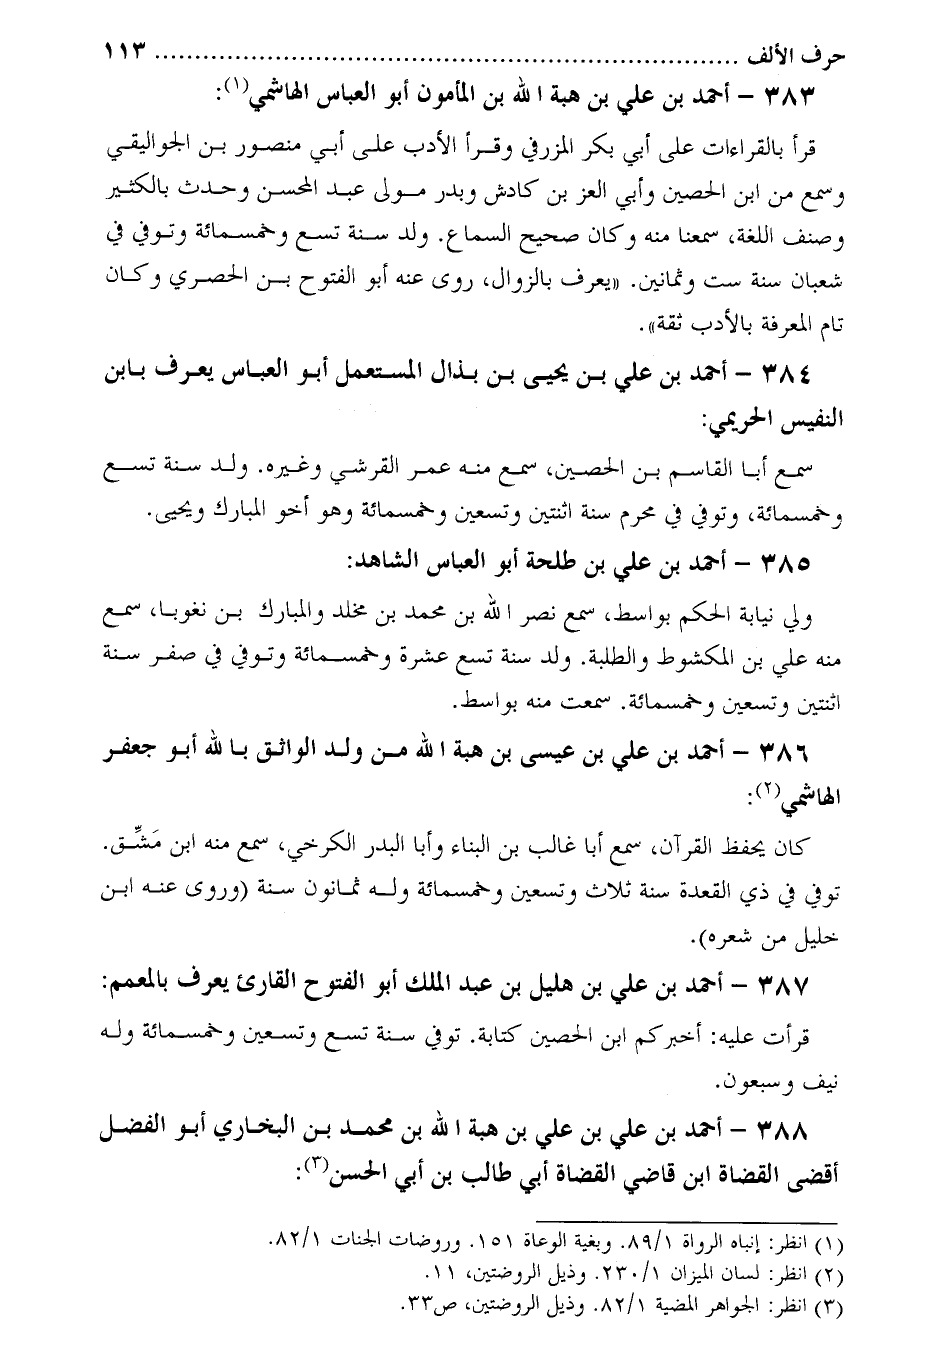 حرف الألف ........................................................................ ١١٣
٣٨٣ – أحمد بن علي بن هبة الله بن المأمون أبو العباس الهاشمي(١):
قرأ بالقراءات على أبي بكر المزرفي وقرأ الأدب على أبي منصور بن الجواليقي
وسمع من ابن الحصين وأبي العز بن كادش وبدر مولى عبد المحسن وحدث بالكثير
وصنف اللغة، سمعنا منه وكان صحيح السماع. ولد سنة تسع وخمسمائة وتوفي في
شعبان سنة ست وثمانين. «يعرف بالزوال، روى عنه أبو الفتوح بن الحصري وكان
تام المعرفة بالأدب ثقة».
٣٨٤ – أحمد بن علي بن يحيى بن بذال المستعمل أبو العباس يعرف بابن
النفيس الحريمي:
سمع أبا القاسم بن الحصين، سمع منه عمر القرشي وغيره. ولد سنة تسع
وخمسمائة، وتوفي في محرم سنة اثنتين وتسعين وخمسمائة وهو أخو المبارك ويحيى.
٣٨٥ – أحمد بن علي بن طلحة أبو العباس الشاهد:
ولي نيابة الحكم بواسط، سمع نصر الله بن محمد بن مخلد والمبارك بن نغوبا، سمع
منه علي بن المكشوط والطلبة. ولد سنة تسع عشرة وخمسمائة وتوفي في صفر سنة
اثنتين وتسعين وخمسمائة. سمعت منه بواسط.
٣٨٦ – أحمد بن علي بن عيسى بن هبة الله من ولد الواثق بالله أبو جعفر
الهاشمي(٢):
كان يحفظ القرآن، سمع أبا غالب بن البناء وأبا البدر الكرخي، سمع منه ابن مَشِّق.
توفي في ذي القعدة سنة ثلاث وتسعين وخمسمائة وله ثمانون سنة (وروى عنه ابن
خليل من شعره).
٣٨٧ – أحمد بن علي بن هليل بن عبد الملك أبو الفتوح القارئ يعرف بالمعمم:
قرأت عليه: أخبركم ابن الحصين كتابة. توفي سنة تسع وتسعين وخمسمائة وله
نيف وسبعون.
٣٨٨ – أحمد بن علي بن علي بن هبة الله بن محمد بن البخاري أبو الفضل
أقضى القضاة ابن قاضي القضاة أبي طالب بن أبي الحسن(٣):
(١) انظر: إنباه الرواة ٨٩/١. وبغية الوعاة ١٥١. وروضات الجنات ٨٢/١.
(٢) انظر: لسان الميزان ٢٣٠/١. وذيل الروضتين، ١١.
(٣) انظر: الجواهر المضية ٨٢/١. وذيل الروضتين، ص٣٣.